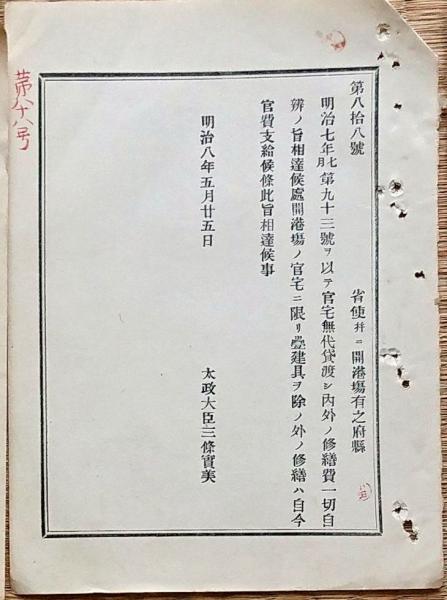 第八拾八號
省使幷ニ開港塲有之府縣
明治七年七月第九十三號ヲ以テ官宅無代貸渡シ內外ノ修繕費一切自
辨ノ旨相達候處開港塲ノ官宅ニ限リ疊建具ヲ除ノ外ノ修繕ハ自今
官費支給候條此旨相達候事
明治八年五月廿五日
太政大臣三條實美
第八十八号